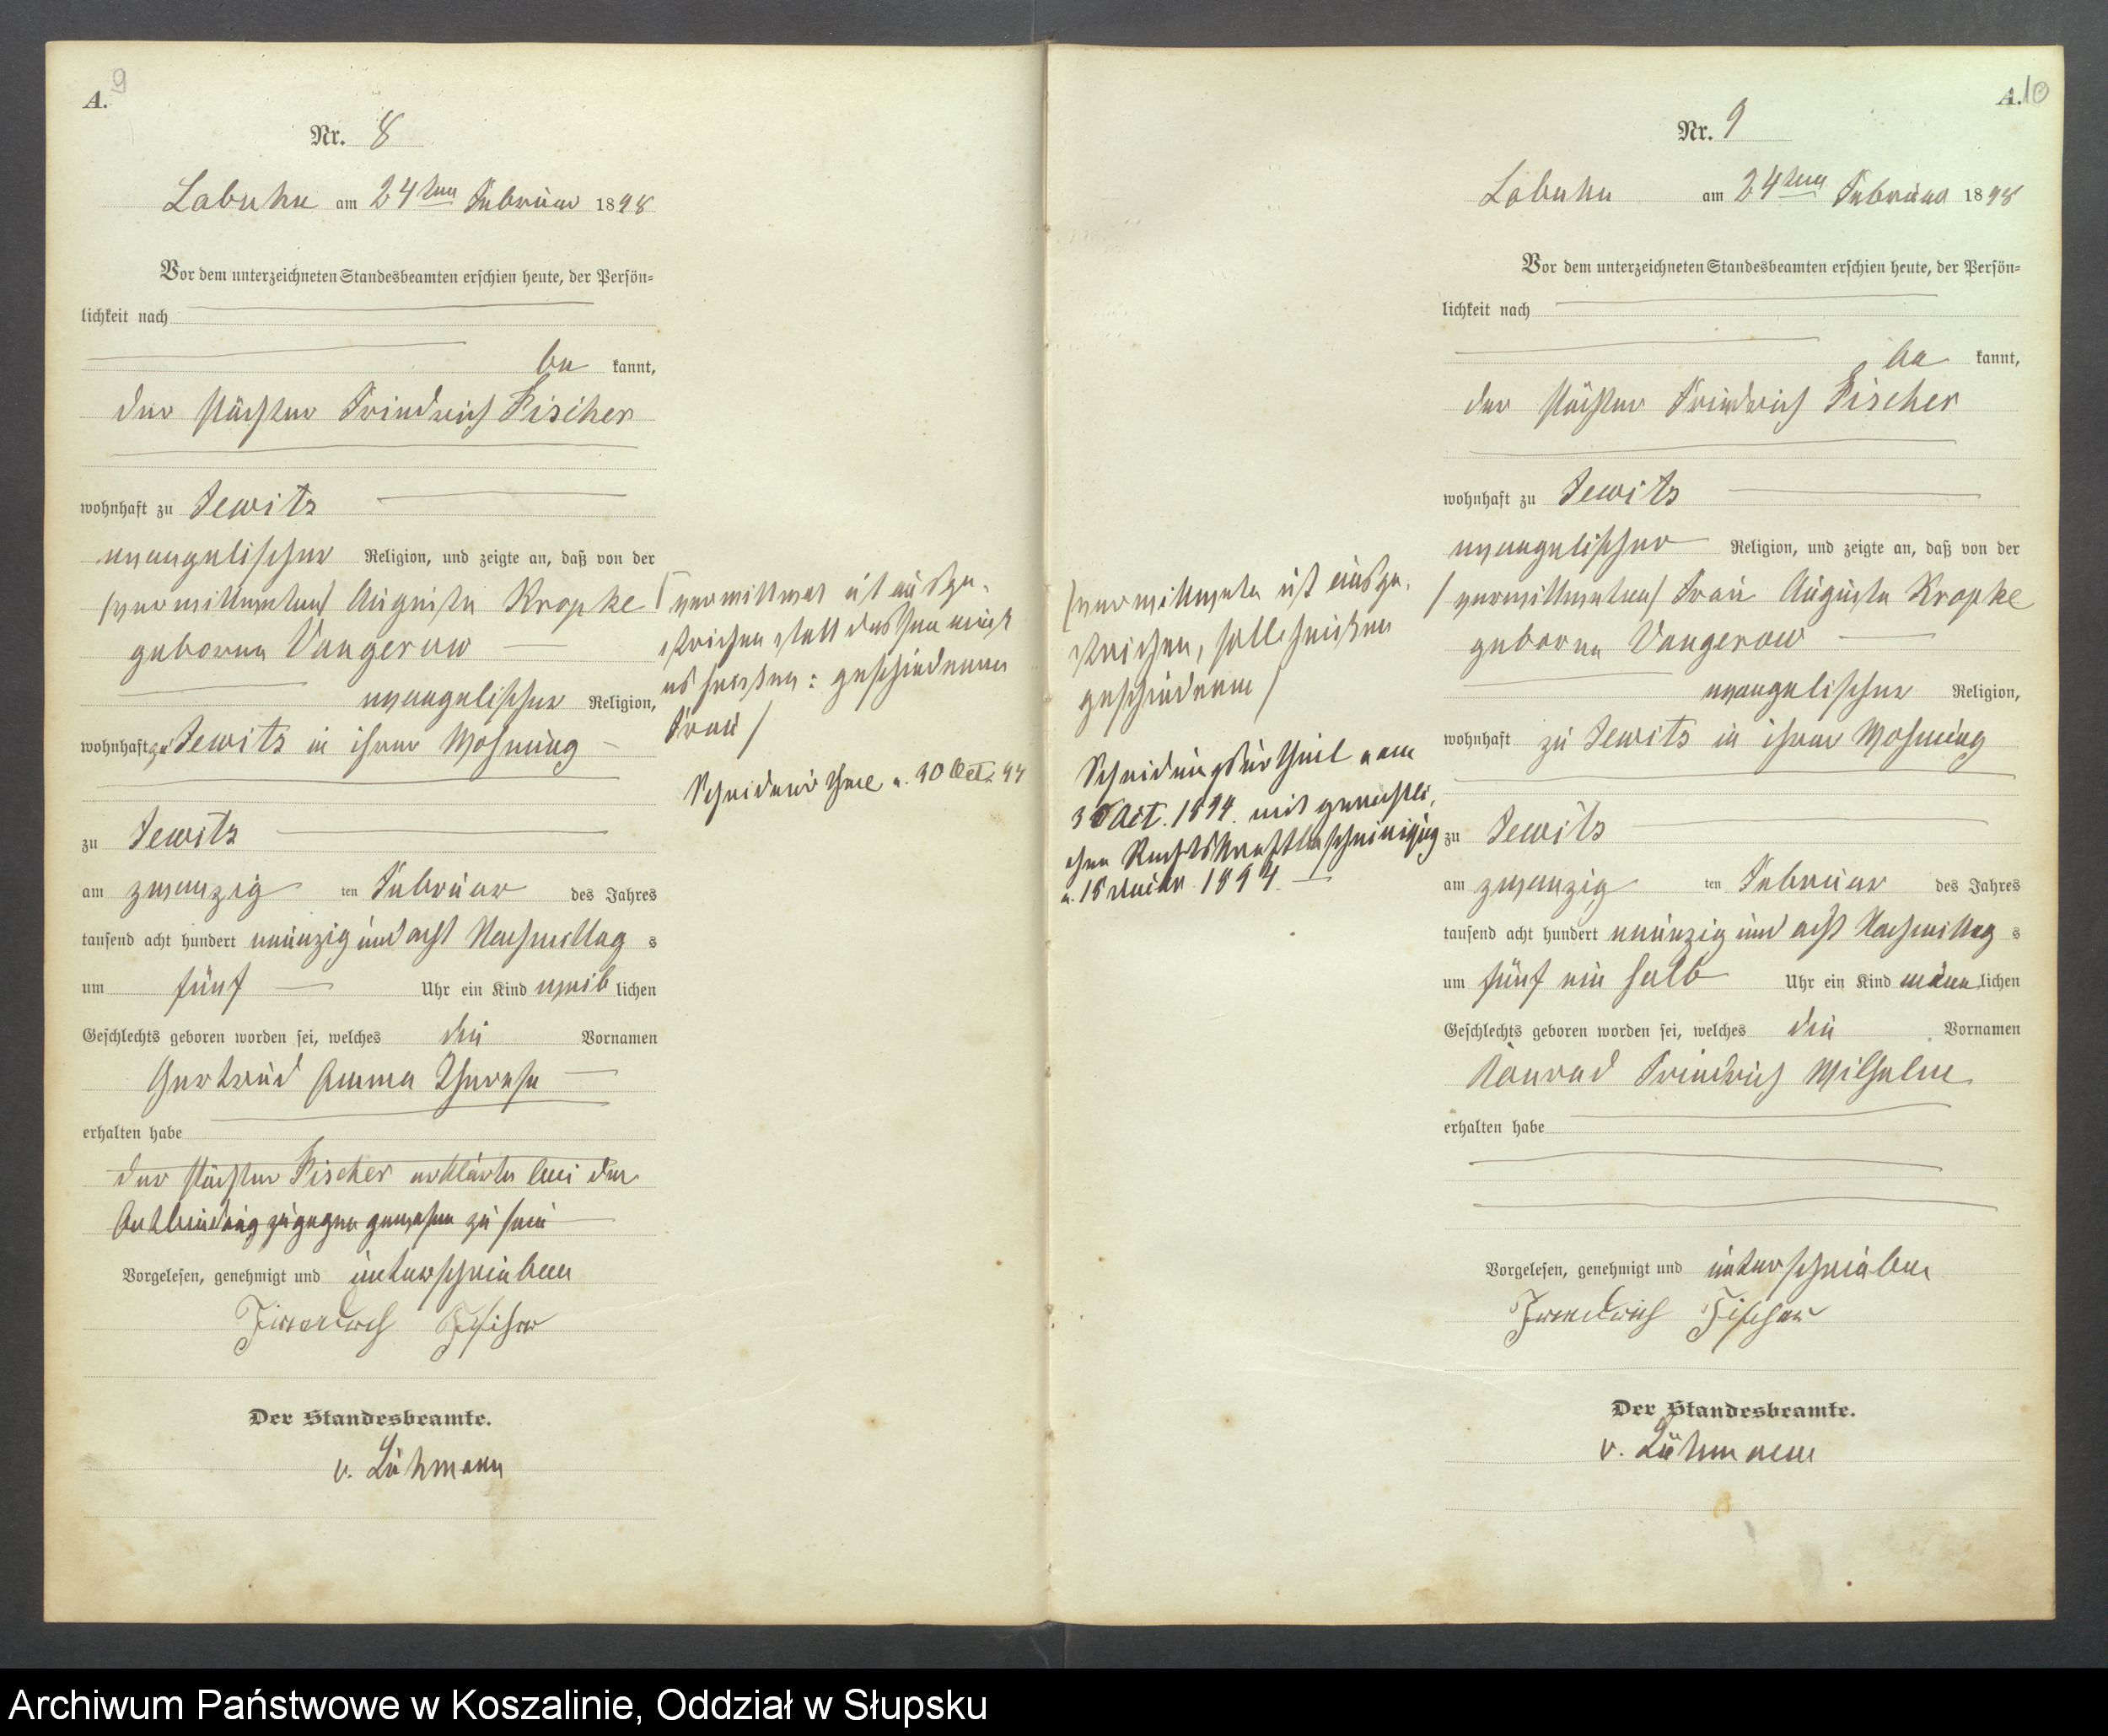 A. 9
Nr. 8
Labuhn am 24ten Februar 1898
Vor dem unterzeichneten Standesbeamten erschien heute, der Persön=
lichkeit nach
be kannt,
der Pächter Friedrich Fischer
wohnhaft zu Jewitz
evangelischer Religion, und zeigte an, daß von der
/verwittweten/ Auguste Kropke
geborne Vangerow
evangelischer Religion,
wohnhaft zu Jewitz in ihrer Wohnung
zu Jewitz
am zwanzig ten Februar des Jahres
tausend acht hundert neunzig und acht Nachmittag s
um fünf Uhr ein Kind weib lichen
Geschlechts geboren worden sei, welches die Vornamen
Gertrud Emma Therese
erhalten habe
der Pächter Fischer erklärte bei der
Entbindung zugegen gewesen zu sein
Vorgelesen, genehmigt und unterschrieben
Friedrich Fischer
Der Standesbeamte.
v. Lühmann
/verwittwet ist ausge-
strichen statt dessen muß
es heißen: geschiedenen
Frau/
v. 30 Oct. 94
A. 10
Nr. 9
Labuhn am 24ten Februar 1898
Vor dem unterzeichneten Standesbeamten erschien heute, der Persön=
lichkeit nach
be kannt,
der Pächter Friedrich Fischer
wohnhaft zu Jewitz
evangelischer Religion, und zeigte an, daß von der
/verwittweten/ Frau Auguste Kropke
geborne Vangerow
evangelischer Religion,
wohnhaft zu Jewitz in ihrer Wohnung
zu Jewitz
am zwanzig ten Februar des Jahres
tausend acht hundert neunzig und acht Nachmittag s
um fünf ein halb Uhr ein Kind männ lichen
Geschlechts geboren worden sei, welches die Vornamen
Konrad Friedrich Wilhelm
erhalten habe
Vorgelesen, genehmigt und unterschrieben
Friedrich Fischer
Der Standesbeamte.
v. Lühmann
/verwittwete ist ausge-
strichen, soll heißen
geschiedene/
Scheidungsurtheil vom
30 Oct. 1894. mit gerichtli-
chen Rechtskraftbescheinigung
v. 1894
Archiwum Państwowe w Koszalinie, Oddział w Słupsku